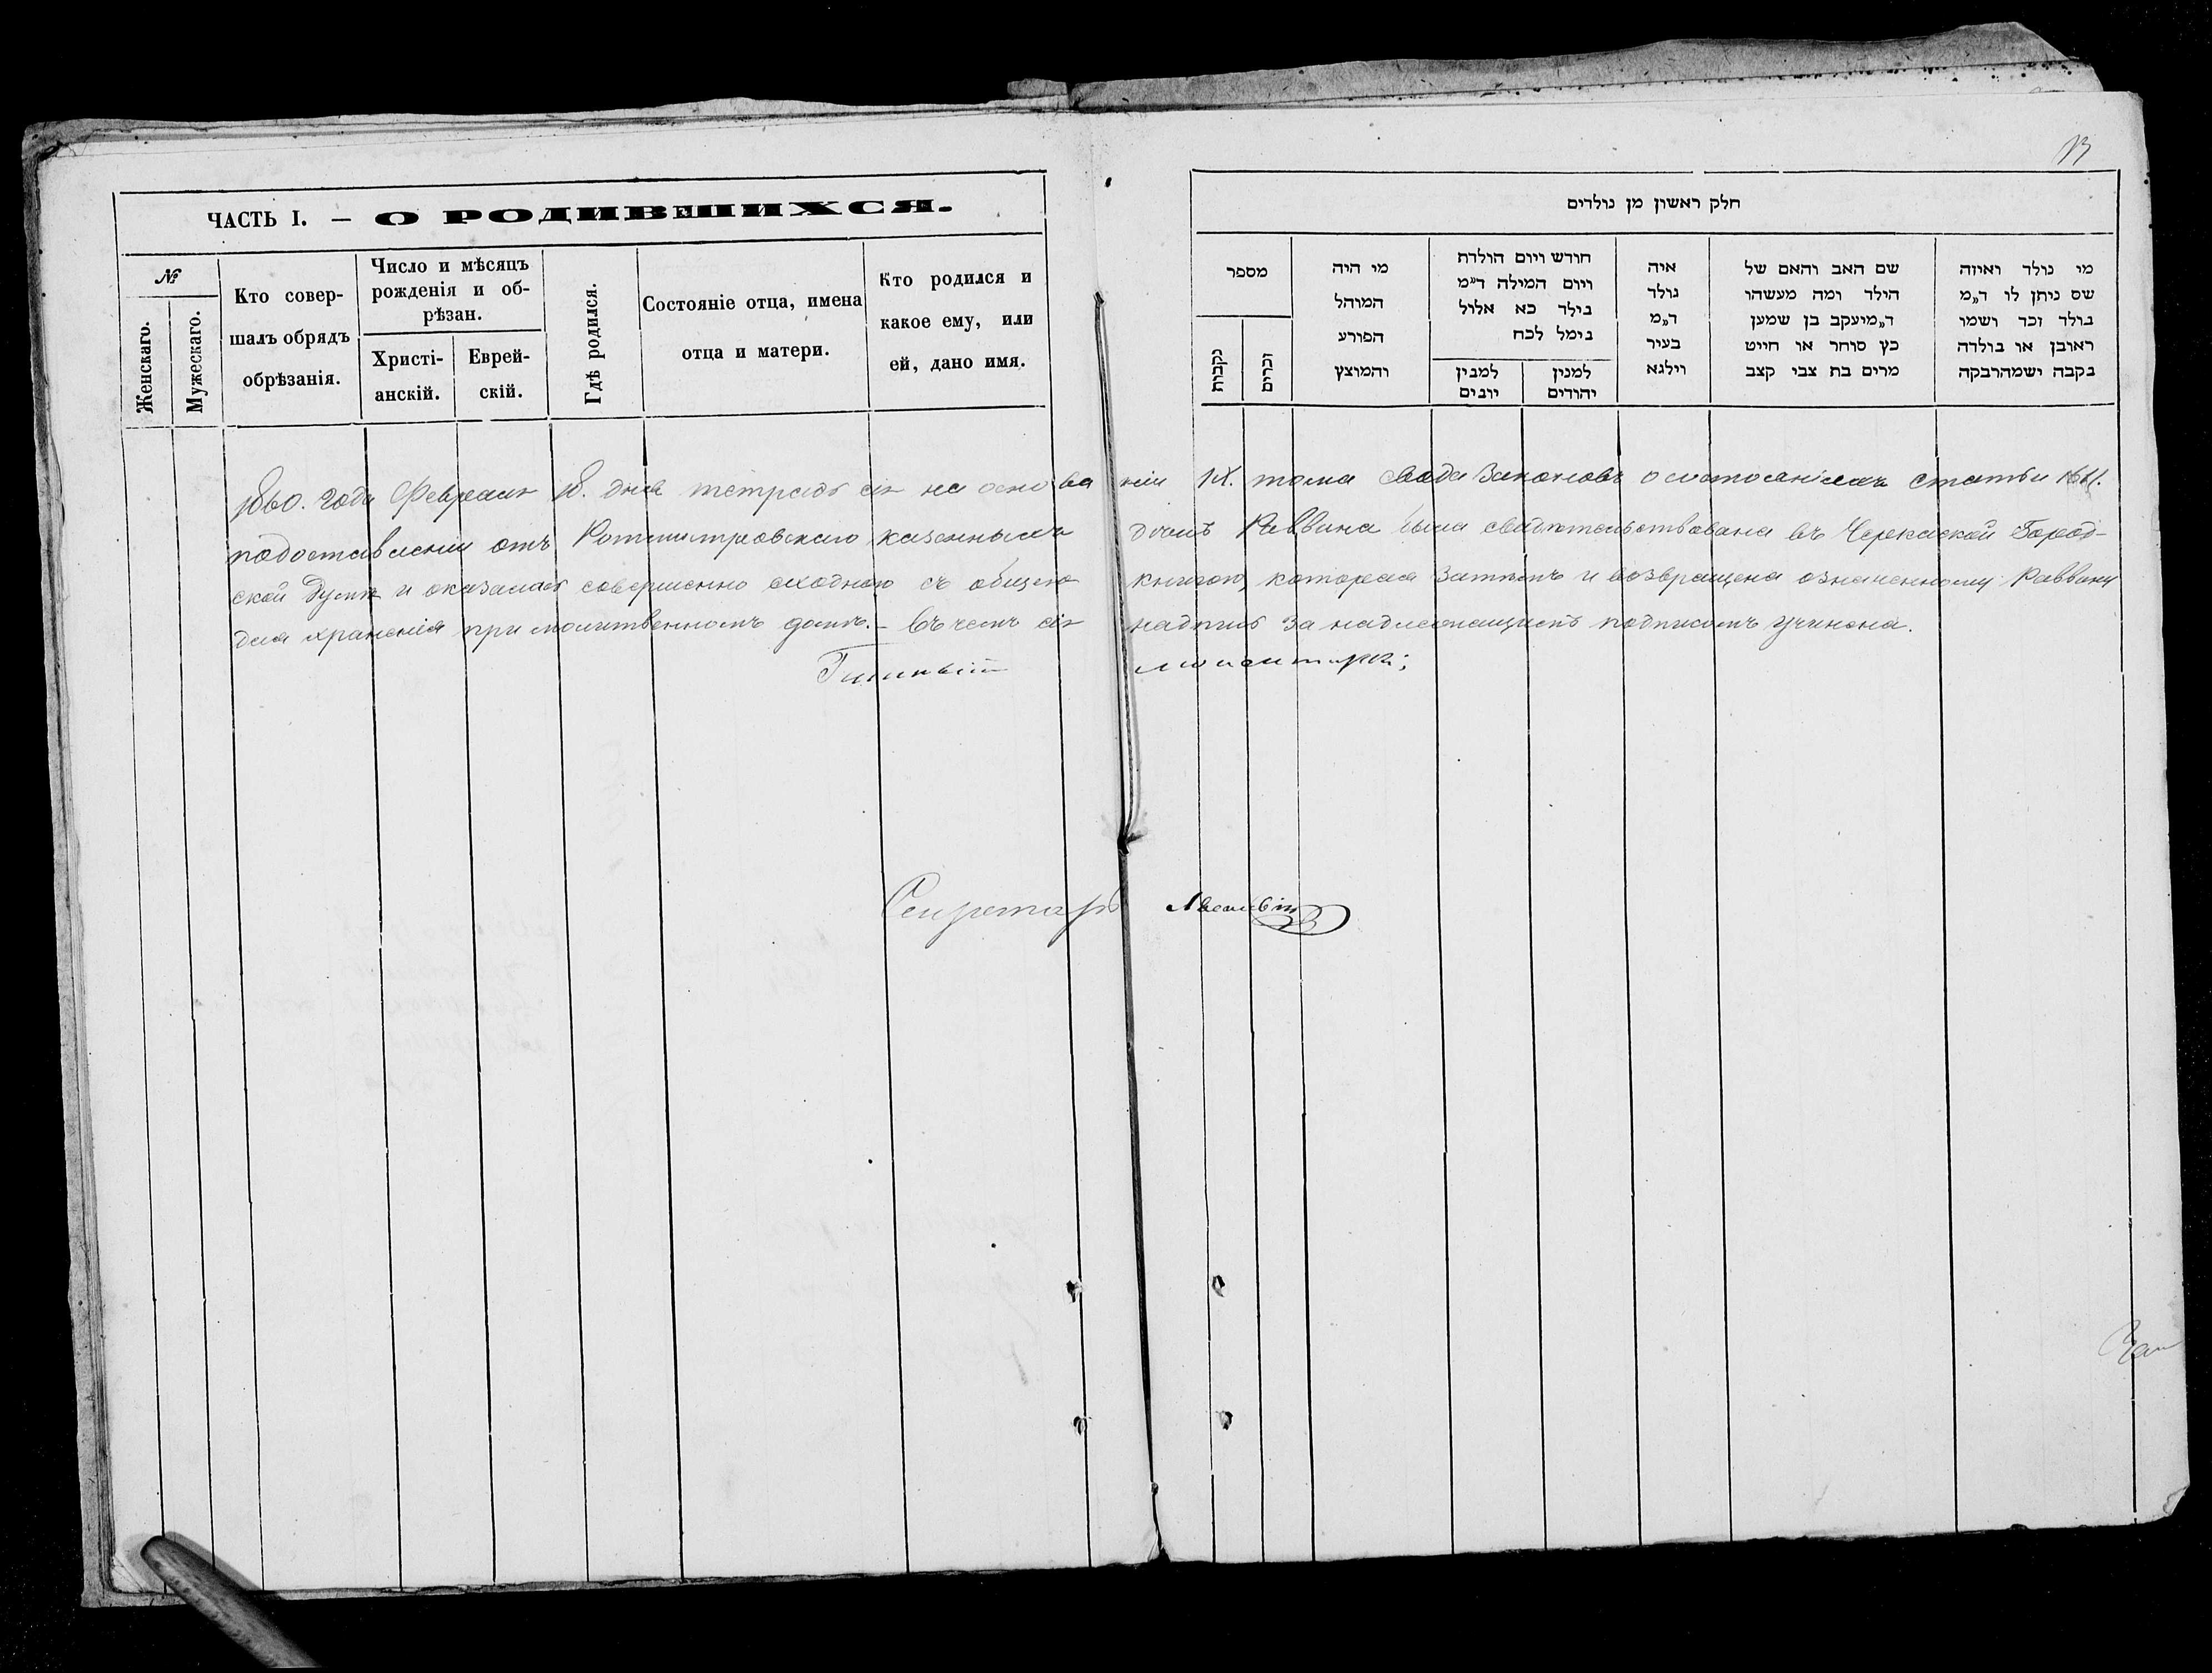 13
ЧАСТЬ I. — О РОДИВШИХСЯ.
№
Женскаго.
Мужескаго.
Кто совер-
шалъ обрядъ
обрѣзанія.
Число и мѣсяцъ
рожденія и об-
рѣзан.
Христі-
анскій.
Еврей-
скій.
Гдѣ родился.
Состояніе отца, имена
отца и матери.
Кто родился и
какое ему, или
ей, дано имя.
חלק ראשון מן נולדים
מספר
נקבות
זכרים
מי היה
המוהל
הפורע
והמוצץ
חודש ויום הולדת
ויום המילה ד״מ
בילד כא אלול
בימל לכח
למנין
יונים
למנין
יהודים
איה
נולד
ד״מ
בעיר
וילנא
שם האב והאם של
הילד ומה מעשהו
ד״מ יעקב בן שמען
כץ סוחר או חייט
מרים בת צבי קצב
מי נולד ואיזה
שם ניתן לו ד״מ
בולד זכר ושמו
ראובן או בולדה
בקבה ישמהרבקה
1860. года Февраля 18. дня тетрадь сія на основаніи IX. тома Свода Законовъ о состояніяхъ статьи
по доставленіи отъ Ротмистровскаго казеннымъ домъ Раввина была свидѣтельствована въ Черкаской Город-
ской Думѣ и оказалась совершенно сходною съ общею книгою, которая затѣмъ и возвращена означенному Раввину
для храненія при молитвенномъ домѣ. — въ чемъ сія надпись за надлежащимъ подписомъ учинена.
Секретарь